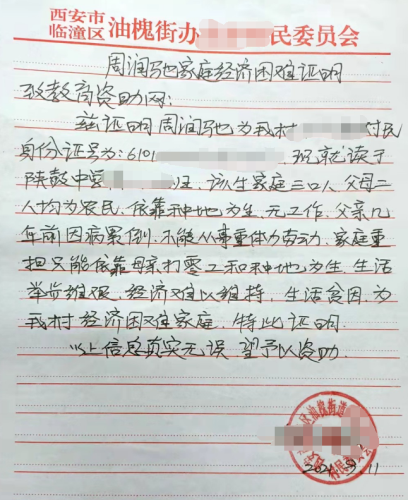 西安市
临潼区 油槐街办 民委员会
周润驰家庭经济困难证明
致教育资助网:
兹证明周润驰为我村 村民
身份证号为:6101 现就读于
陕鼓中学 班,该生家庭三口人,父母二
人均为农民,依靠种地为生,无工作,父亲几
年前因病累倒,不能从事重体力劳动,家庭重
担只能依靠母亲打零工和种地为生,生活
举步维艰,经济难以维持,生活贫困,为
我村经济困难家庭,特此证明.
以上信息真实无误 望予以资助.
油槐街道
村民委员会
2021.9.11